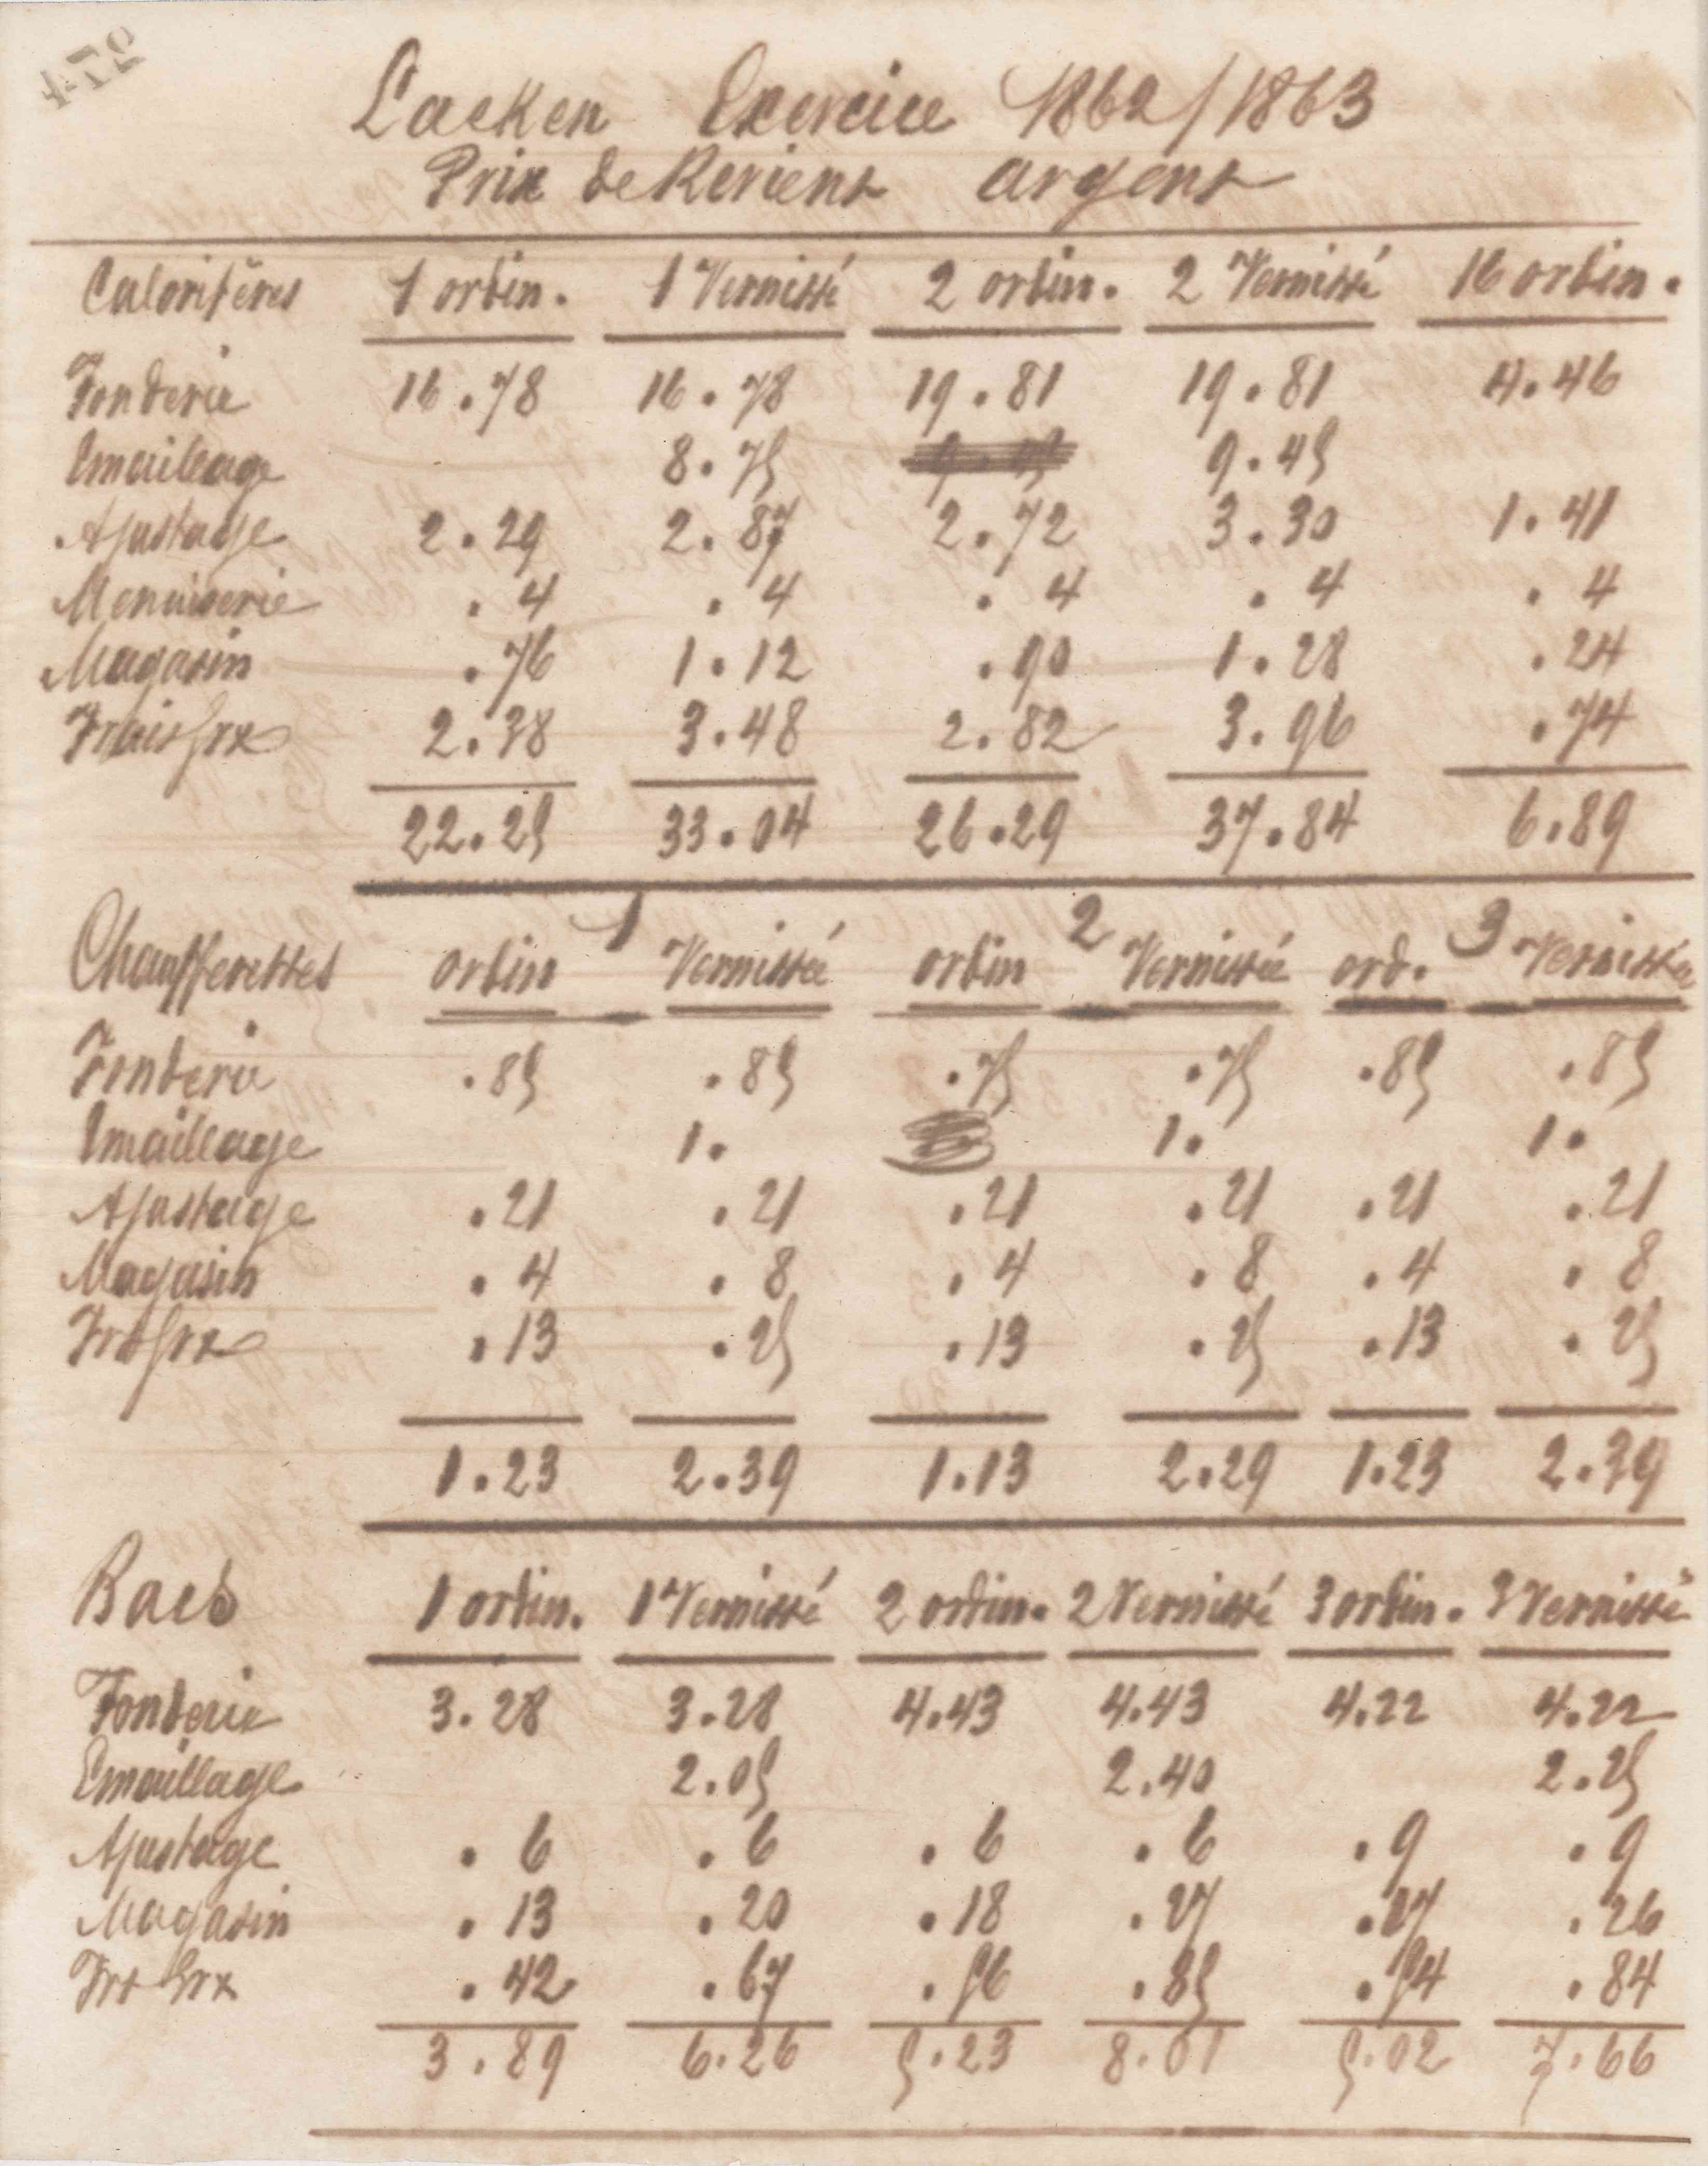 472
Laeken Exercice 1862/1863
Prix de Revient argent
Calorifères 1 ordin. 1 Vernissé 2 ordin. 2 Vernissé 16 ordin.
Fonderie 16.78 16.78 19.81 19.81 4.46
Emaillage 8.75 9.45
Ajustage 2.29 2.87 2.72 3.30 1.41
Menuiserie . 4 . 4 . 4 . 4 . 4
Magasin .76 1.12 .90 1.28 .24
Frais Grx 2.38 3.48 2.82 3.96 .74
22.25 33.04 26.29 37.84 6.89
1 2 3
Chaufferettes ordin Vernissée ordin Vernissée ord. Vernissée
Fonderie .85 .85 .75 .75 .85 .85
Emaillage 1. 1. 1.
Ajustage .21 .21 .21 .21 .21 .21
Magasin . 4 . 8 . 4 . 8 . 4 . 8
Frs Grx .13 .25 .13 .25 .13 .25
1.23 2.39 1.13 2.29 1.23 2.39
Bacs 1 ordin. 1 Vernissé 2 ordin. 2 Vernissé 3 ordin. 3 Vernissé
Fonderie 3.28 3.28 4.43 4.43 4.22 4.22
Emaillage 2.05 2.40 2.25
Ajustage . 6 . 6 . 6 . 6 . 9 . 9
Magasin . 13 .20 .18 .27 .17 .26
Frs Grx . 42 .67 .56 .85 .54 .84
3.89 6.26 5.23 8.01 5.02 7.66